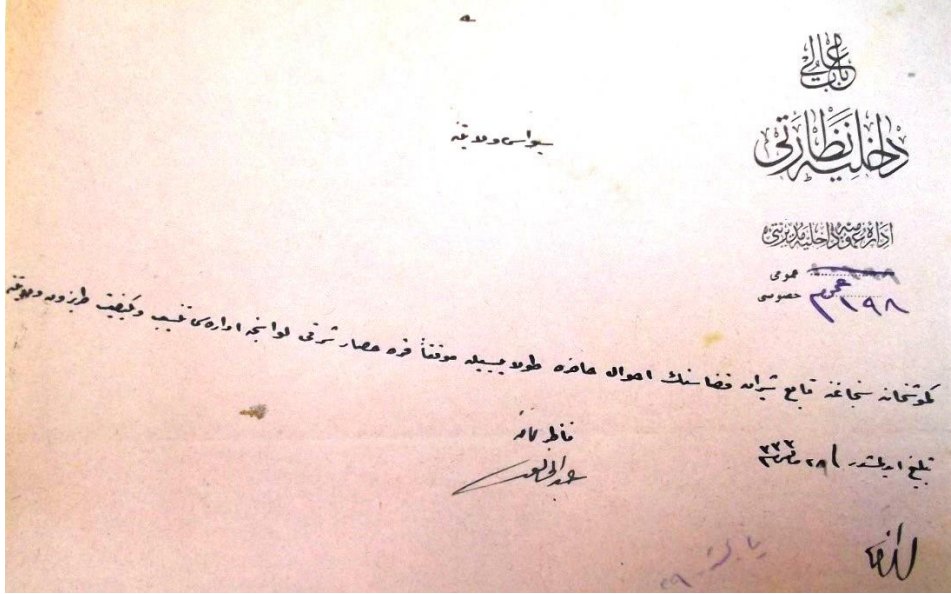 باب عالی
داخلیه نظارتی
اداره عمومیه داخلیه مدیریتی
عمومی
خصوصی ١٩٨
سیواس ولایتنه
كموشخانه سنجاغنه تابع شیران قضاسنك احوال حاضره طولاییسیله موقتاً قره حصار شرقی لواسنجه اداره‌سی تنسیب وكیفیت طربزون ولایتنه
تبلیغ ایدلمشدر ٢٩ مارت ٣٣٢
ناظر نامنه
عبدالخالق